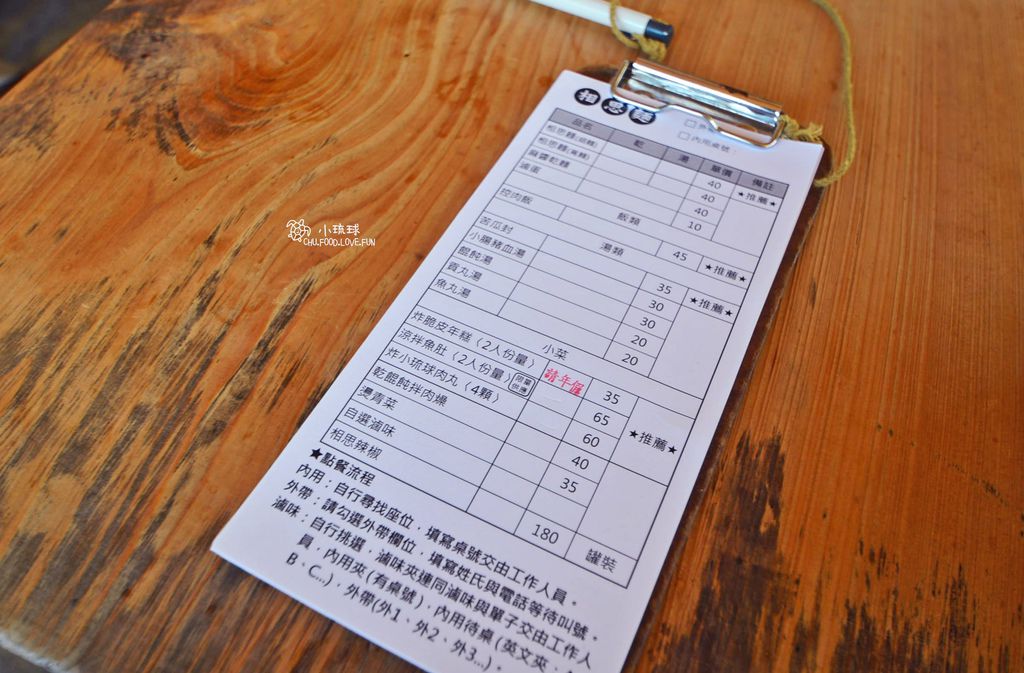 相思麵
□外
□內用桌號：
品名 乾 湯 單價 備註
相思麵(粗麵) 40 ★推薦★
相思麵(黃麵) 40
麻醬乾麵 40
滷蛋 10
飯類
控肉飯 45 ★推薦★
湯類
苦瓜封 35 ★推薦★
小腸豬血湯 30
餛飩湯 30
貢丸湯 20
魚丸湯 20
小菜
炸脆皮年糕（2人份量） 35
涼拌魚肚（2人份量） 限量供應 65 ★推薦★
炸小琉球肉丸（4顆） 60
乾餛飩拌肉燥 40
燙青菜 35
自選滷味
相思辣椒 180 罐裝
★點餐流程
內用：自行尋找座位，填寫桌號交由工作人員。
外帶：請勾選外帶欄位，填寫姓氏與電話等待叫號。
滷味：自行挑選，滷味夾連同滷味與單子交由工作人
員，內用夾(有桌號)，內用待桌(英文夾、
B、C...)，外帶(外1、外2、外3...)。
小琉球
CHU.FOOD.LOVE.FUN